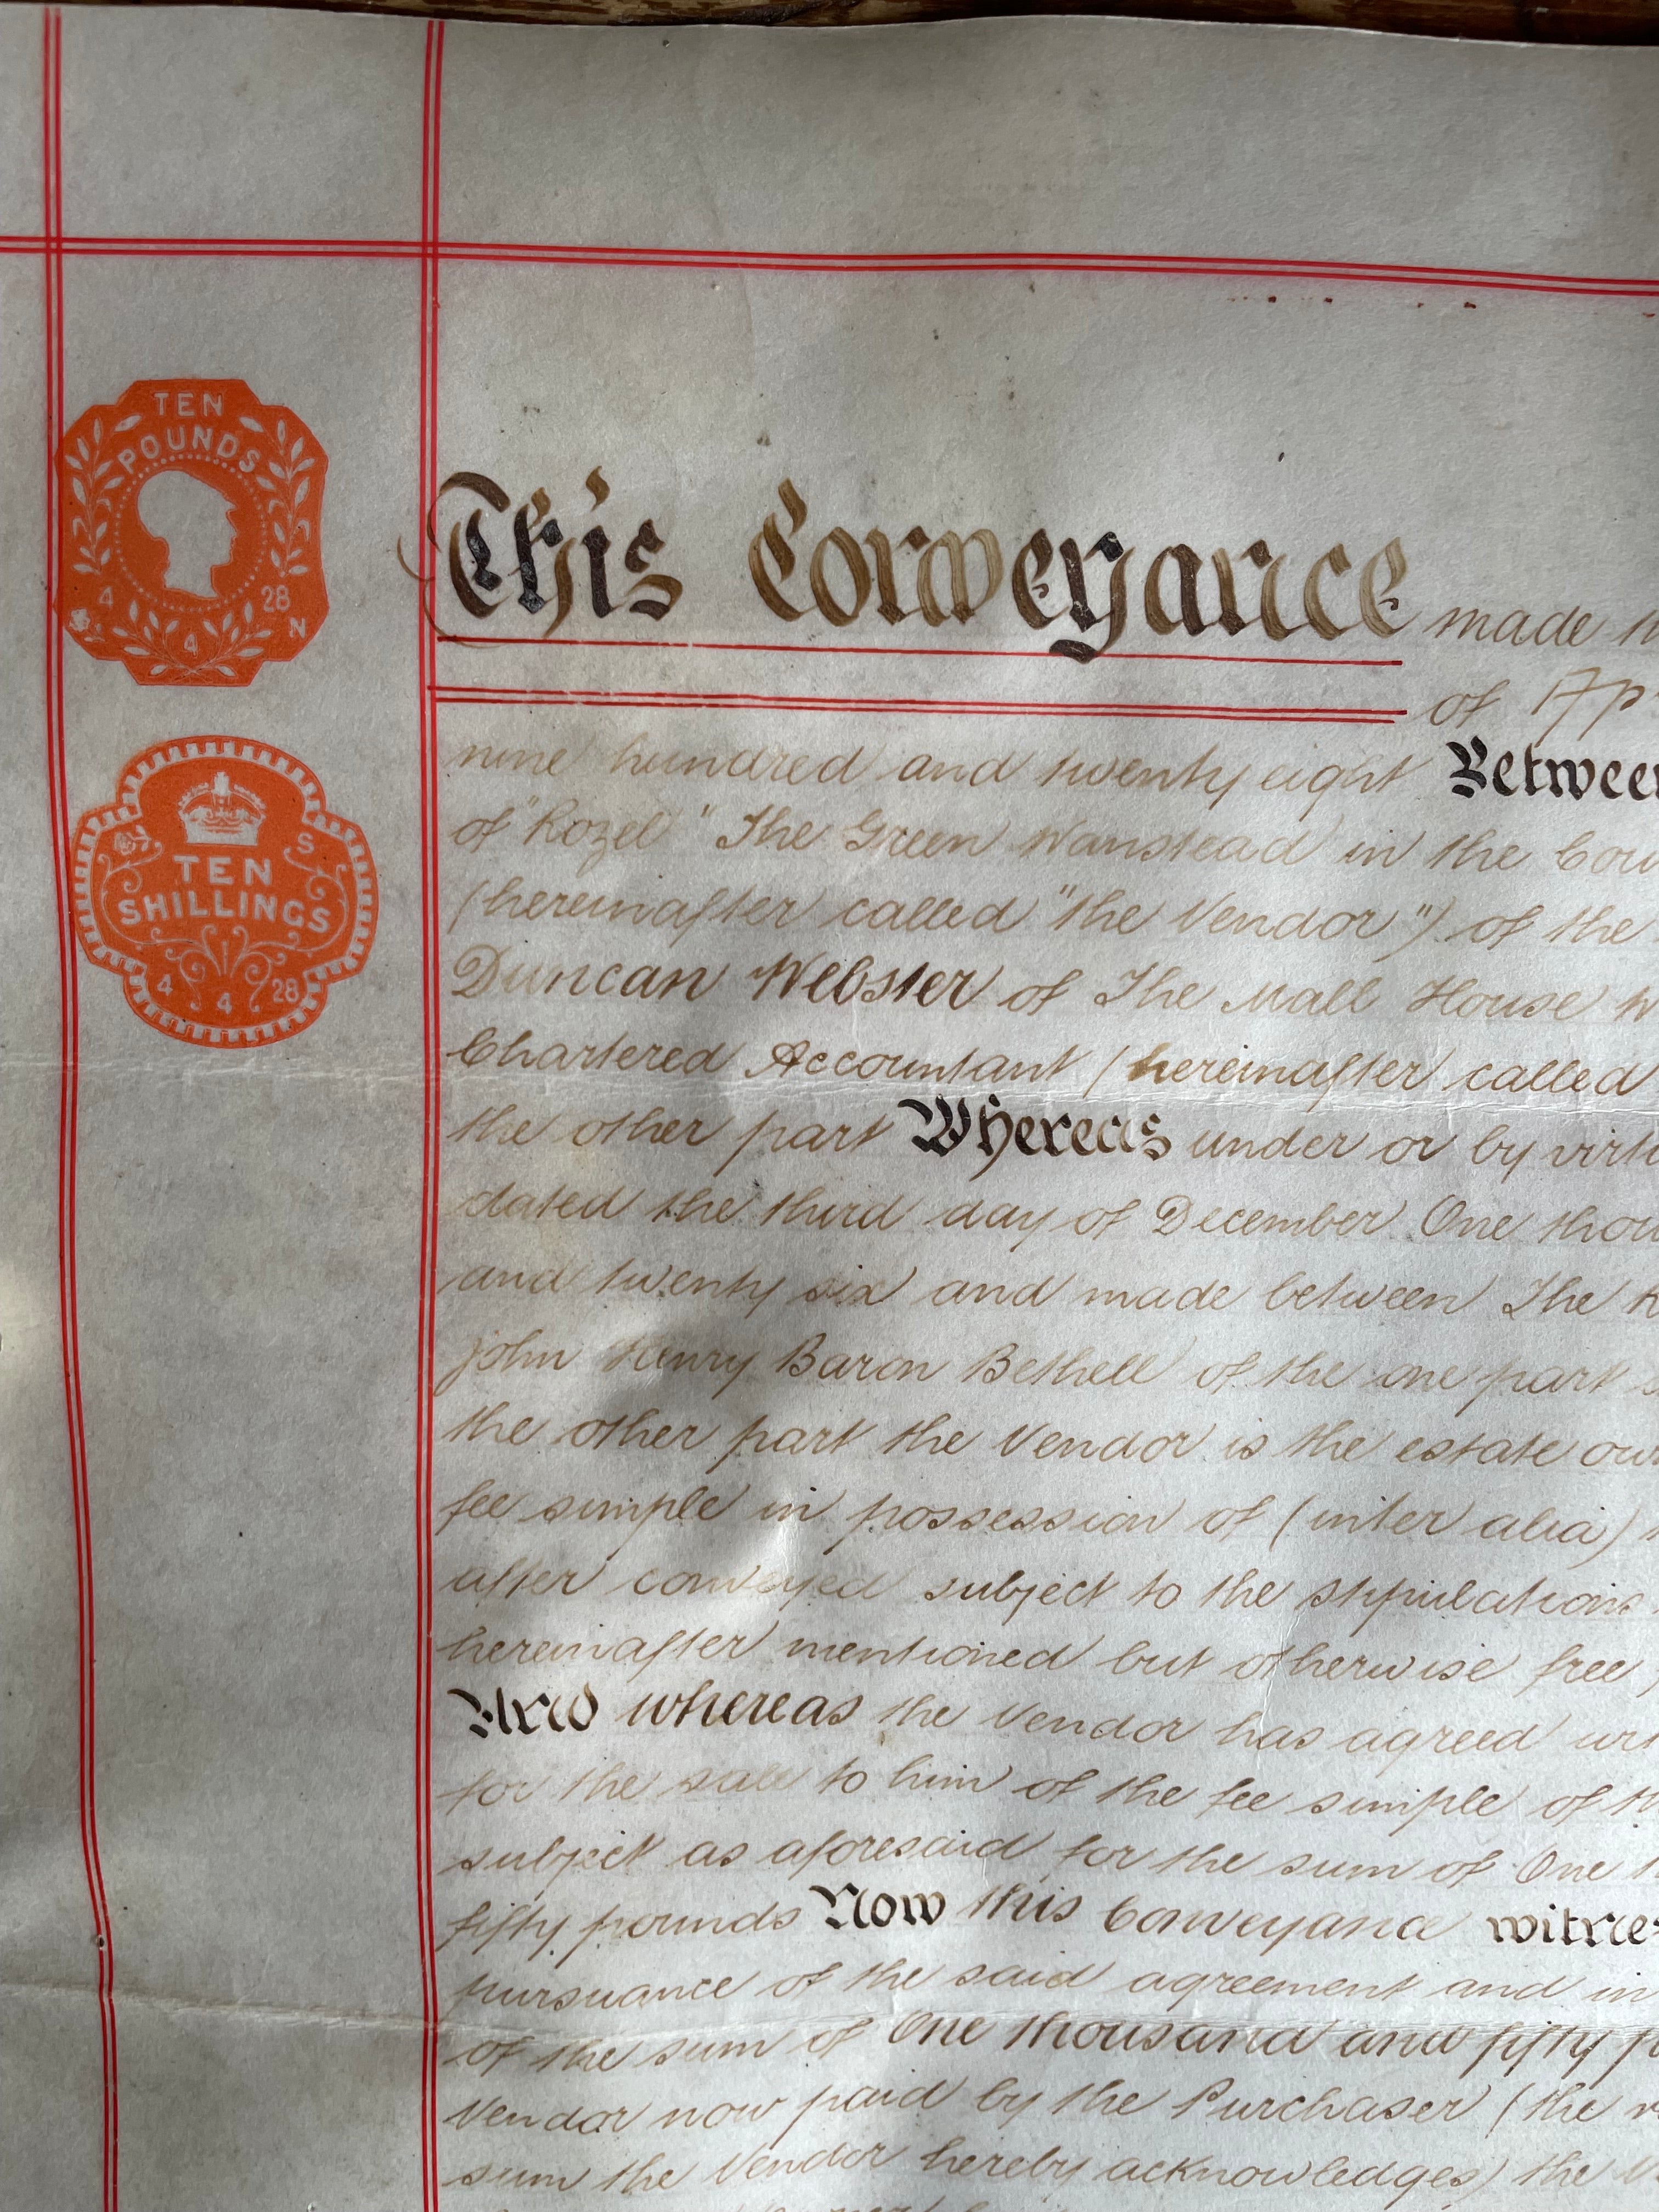 TEN
POUNDS
4 28
4 N
S
TEN
SHILLINGS
4 4 28
This Conveyance made
of
nine hundred and twenty eight Between
of "Rozel" The Green Wanstead in the
(hereinafter called "the Vendor") of the
Duncan Webster of The Mall House
Chartered Accountant (hereinafter called
the other part Whereas under or by
dated the third day of December One
and twenty six and made between The
John Henry Baron Bethell of the one part
the other part the Vendor is the estate
fee simple in possession of (inter alia)
after conveyed subject to the stipulations
hereinafter mentioned but otherwise free
And whereas the Vendor has agreed
for the sale to him of the fee simple of
subject as aforesaid for the sum of One
fifty pounds Now this Conveyance
pursuance of the said agreement and in
of the sum of One thousand and fifty
Vendor now paid by the Purchaser (the
sum the Vendor hereby acknowledges) the